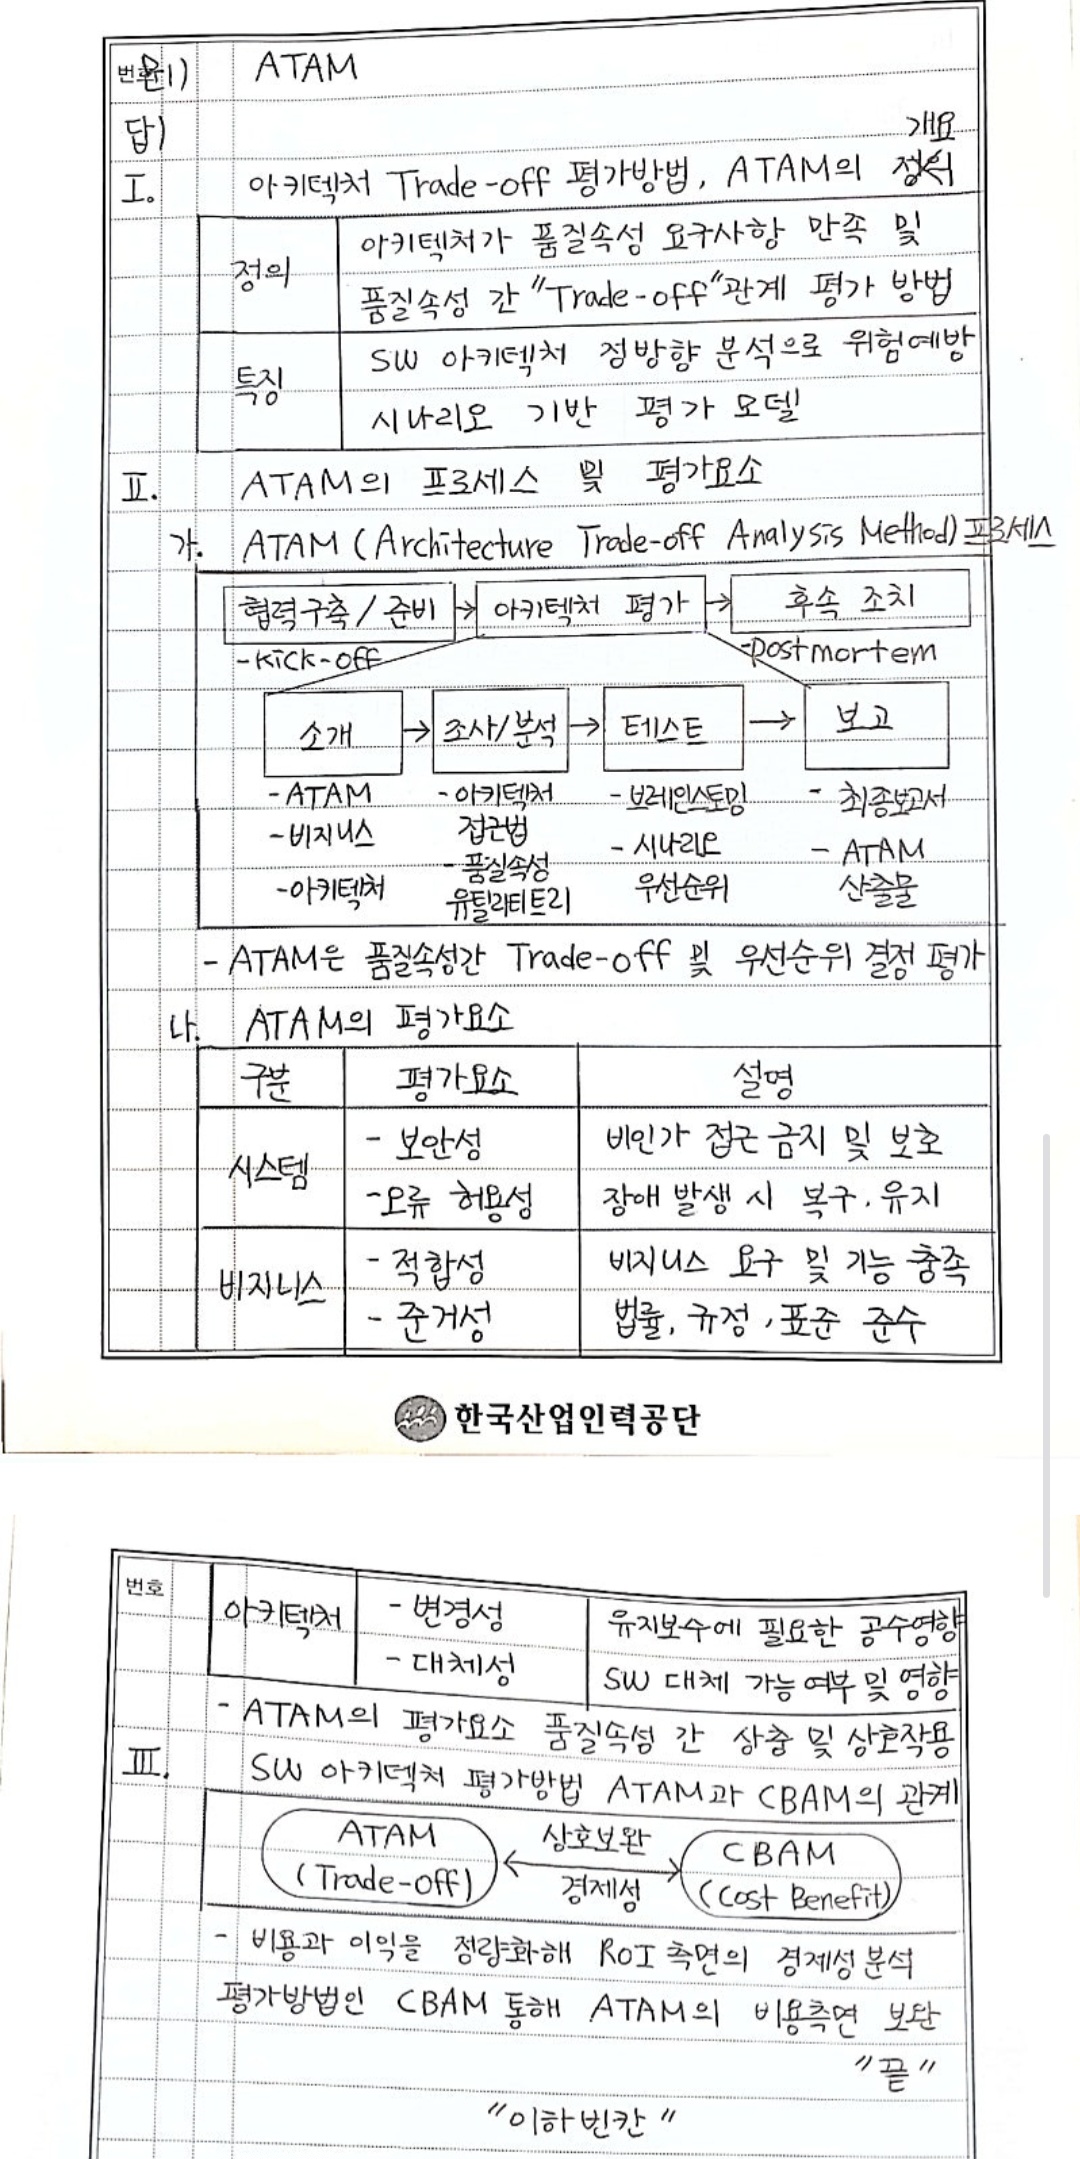 번호 문1) ATAM
답)
개요
I. 아키텍처 Trade-off 평가방법, ATAM의 정의
정의 아키텍처가 품질속성 요구사항 만족 및
품질속성 간 "Trade-off"관계 평가 방법
특징 SW 아키텍처 정방향 분석으로 위험예방
시나리오 기반 평가 모델
II. ATAM의 프로세스 및 평가요소
가. ATAM (Architecture Trade-off Analysis Method) 프로세스
협력구축/준비 → 아키텍처 평가 → 후속 조치
-kick-off -postmortem
소개 → 조사/분석 → 테스트 → 보고
-ATAM -아키텍처 -브레인스토밍 - 최종보고서
-비지니스 접근법 - 시나리오 - ATAM
-아키텍처 - 품질속성 우선순위 산출물
유틸리티트리
- ATAM은 품질속성간 Trade-off 및 우선순위 결정 평가
나. ATAM의 평가요소
구분 평가요소 설명
시스템 - 보안성 비인가 접근 금지 및 보호
-오류 허용성 장애 발생 시 복구·유지
비지니스 - 적합성 비지니스 요구 및 기능 충족
- 준거성 법률, 규정, 표준 준수
한국산업인력공단
번호 아키텍처 - 변경성 유지보수에 필요한 공수영향
- 대체성 SW 대체 가능 여부 및 영향
- ATAM의 평가요소 품질속성 간 상충 및 상호작용
III. SW 아키텍처 평가방법 ATAM과 CBAM의 관계
ATAM 상호보완 CBAM
(Trade-off) 경제성 (Cost Benefit)
- 비용과 이익을 정량화해 ROI 측면의 경제성 분석
평가방법인 CBAM 통해 ATAM의 비용측면 보완
"끝"
"이하 빈칸"